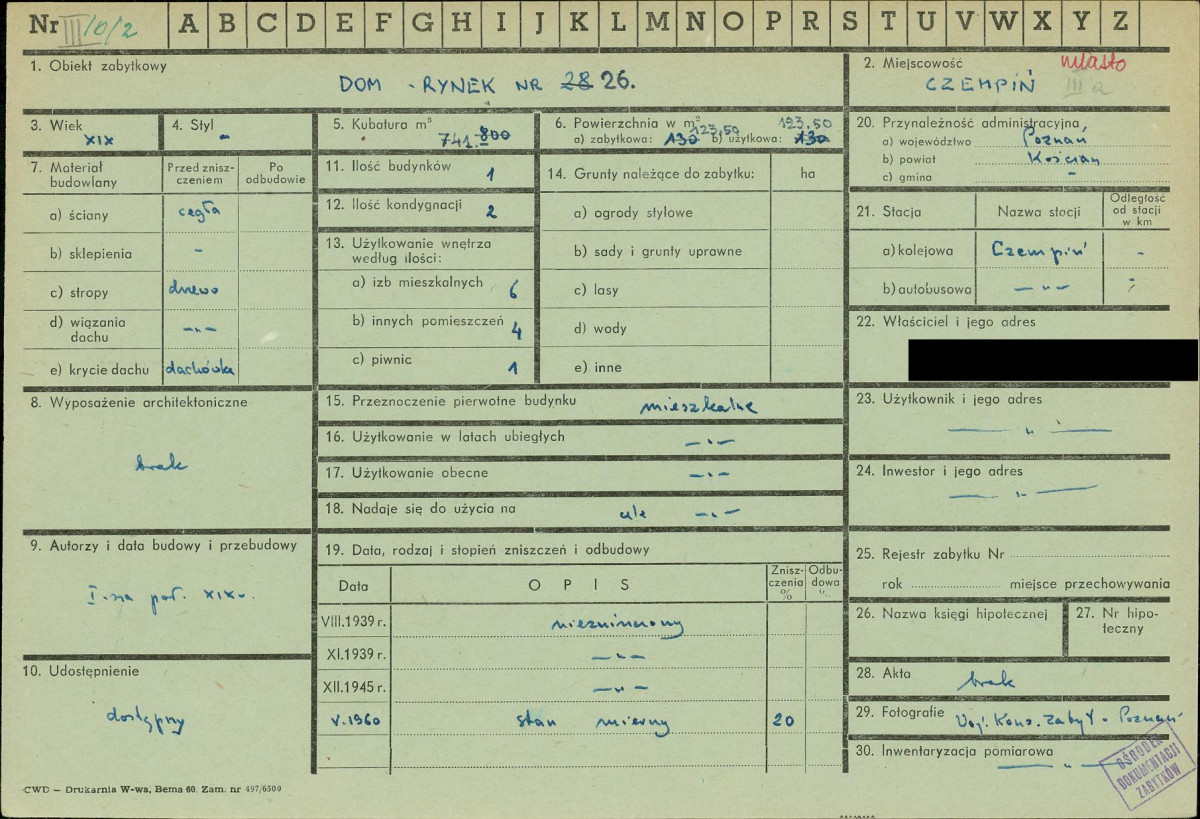 Nr III/10/2 A B C D E F G H I J K L M N O P R S T U V W X Y Z
1. Obiekt zabytkowy
DOM - RYNEK NR 28 26.
2. Miejscowość miasto
CZEMPIŃ III a
3. Wiek
XIX
4. Styl
-
5. Kubatura m³
741.- 800
6. Powierzchnia w m² 123,50 123.50
a) zabytkowa: 130 b) użytkowa: 130
20. Przynależność administracyjna
a) województwo Poznań
b) powiat Kościan
c) gmina -"-
7. Materiał budowlany
Przed zniszczeniem
Po odbudowie
a) ściany cegła
b) sklepienia -
c) stropy drewo
d) wiązania dachu -"-
e) krycie dachu dachówka
11. Ilość budynków 1
12. Ilość kondygnacji 2
13. Użytkowanie wnętrza
według ilości:
a) izb mieszkalnych 6
b) innych pomieszczeń 4
c) piwnic 1
14. Grunty należące do zabytku: ha
a) ogrody stylowe
b) sady i grunty uprawne
c) lasy
d) wody
e) inne
21. Stacja
Nazwa stacji
Odległość od stacji w km
a) kolejowa Czempiń -
b) autobusowa -"-
22. Właściciel i jego adres
8. Wyposażenie architektoniczne
brak
15. Przeznaczenie pierwotne budynku mieszkalne
16. Użytkowanie w latach ubiegłych -"-
17. Użytkowanie obecne -"-
18. Nadaje się do użycia na cele -"-
23. Użytkownik i jego adres
-"-
24. Inwestor i jego adres
-"-
9. Autorzy i data budowy i przebudowy
I-sza poł. XIX w.
19. Data, rodzaj i stopień zniszczeń i odbudowy
Data
O P I S
Zniszczenia %
Odbudowa %
VIII.1939 r. niezniszczony
XI.1939 r. -"-
XII.1945 r. -"-
V.1960 stan mierny 20
25. Rejestr zabytku Nr
rok miejsce przechowywania
26. Nazwa księgi hipotecznej
27. Nr hipoteczny
10. Udostępnienie
dostępny
28. Akta brak
29. Fotografie Woj. Kons. Zabyt - Poznań
30. Inwentaryzacja pomiarowa
-"-
OŚRODEK
DOKUMENTACJI
ZABYTKÓW
CWD – Drukarnia W-wa, Bema 60. Zam. nr 497/6500